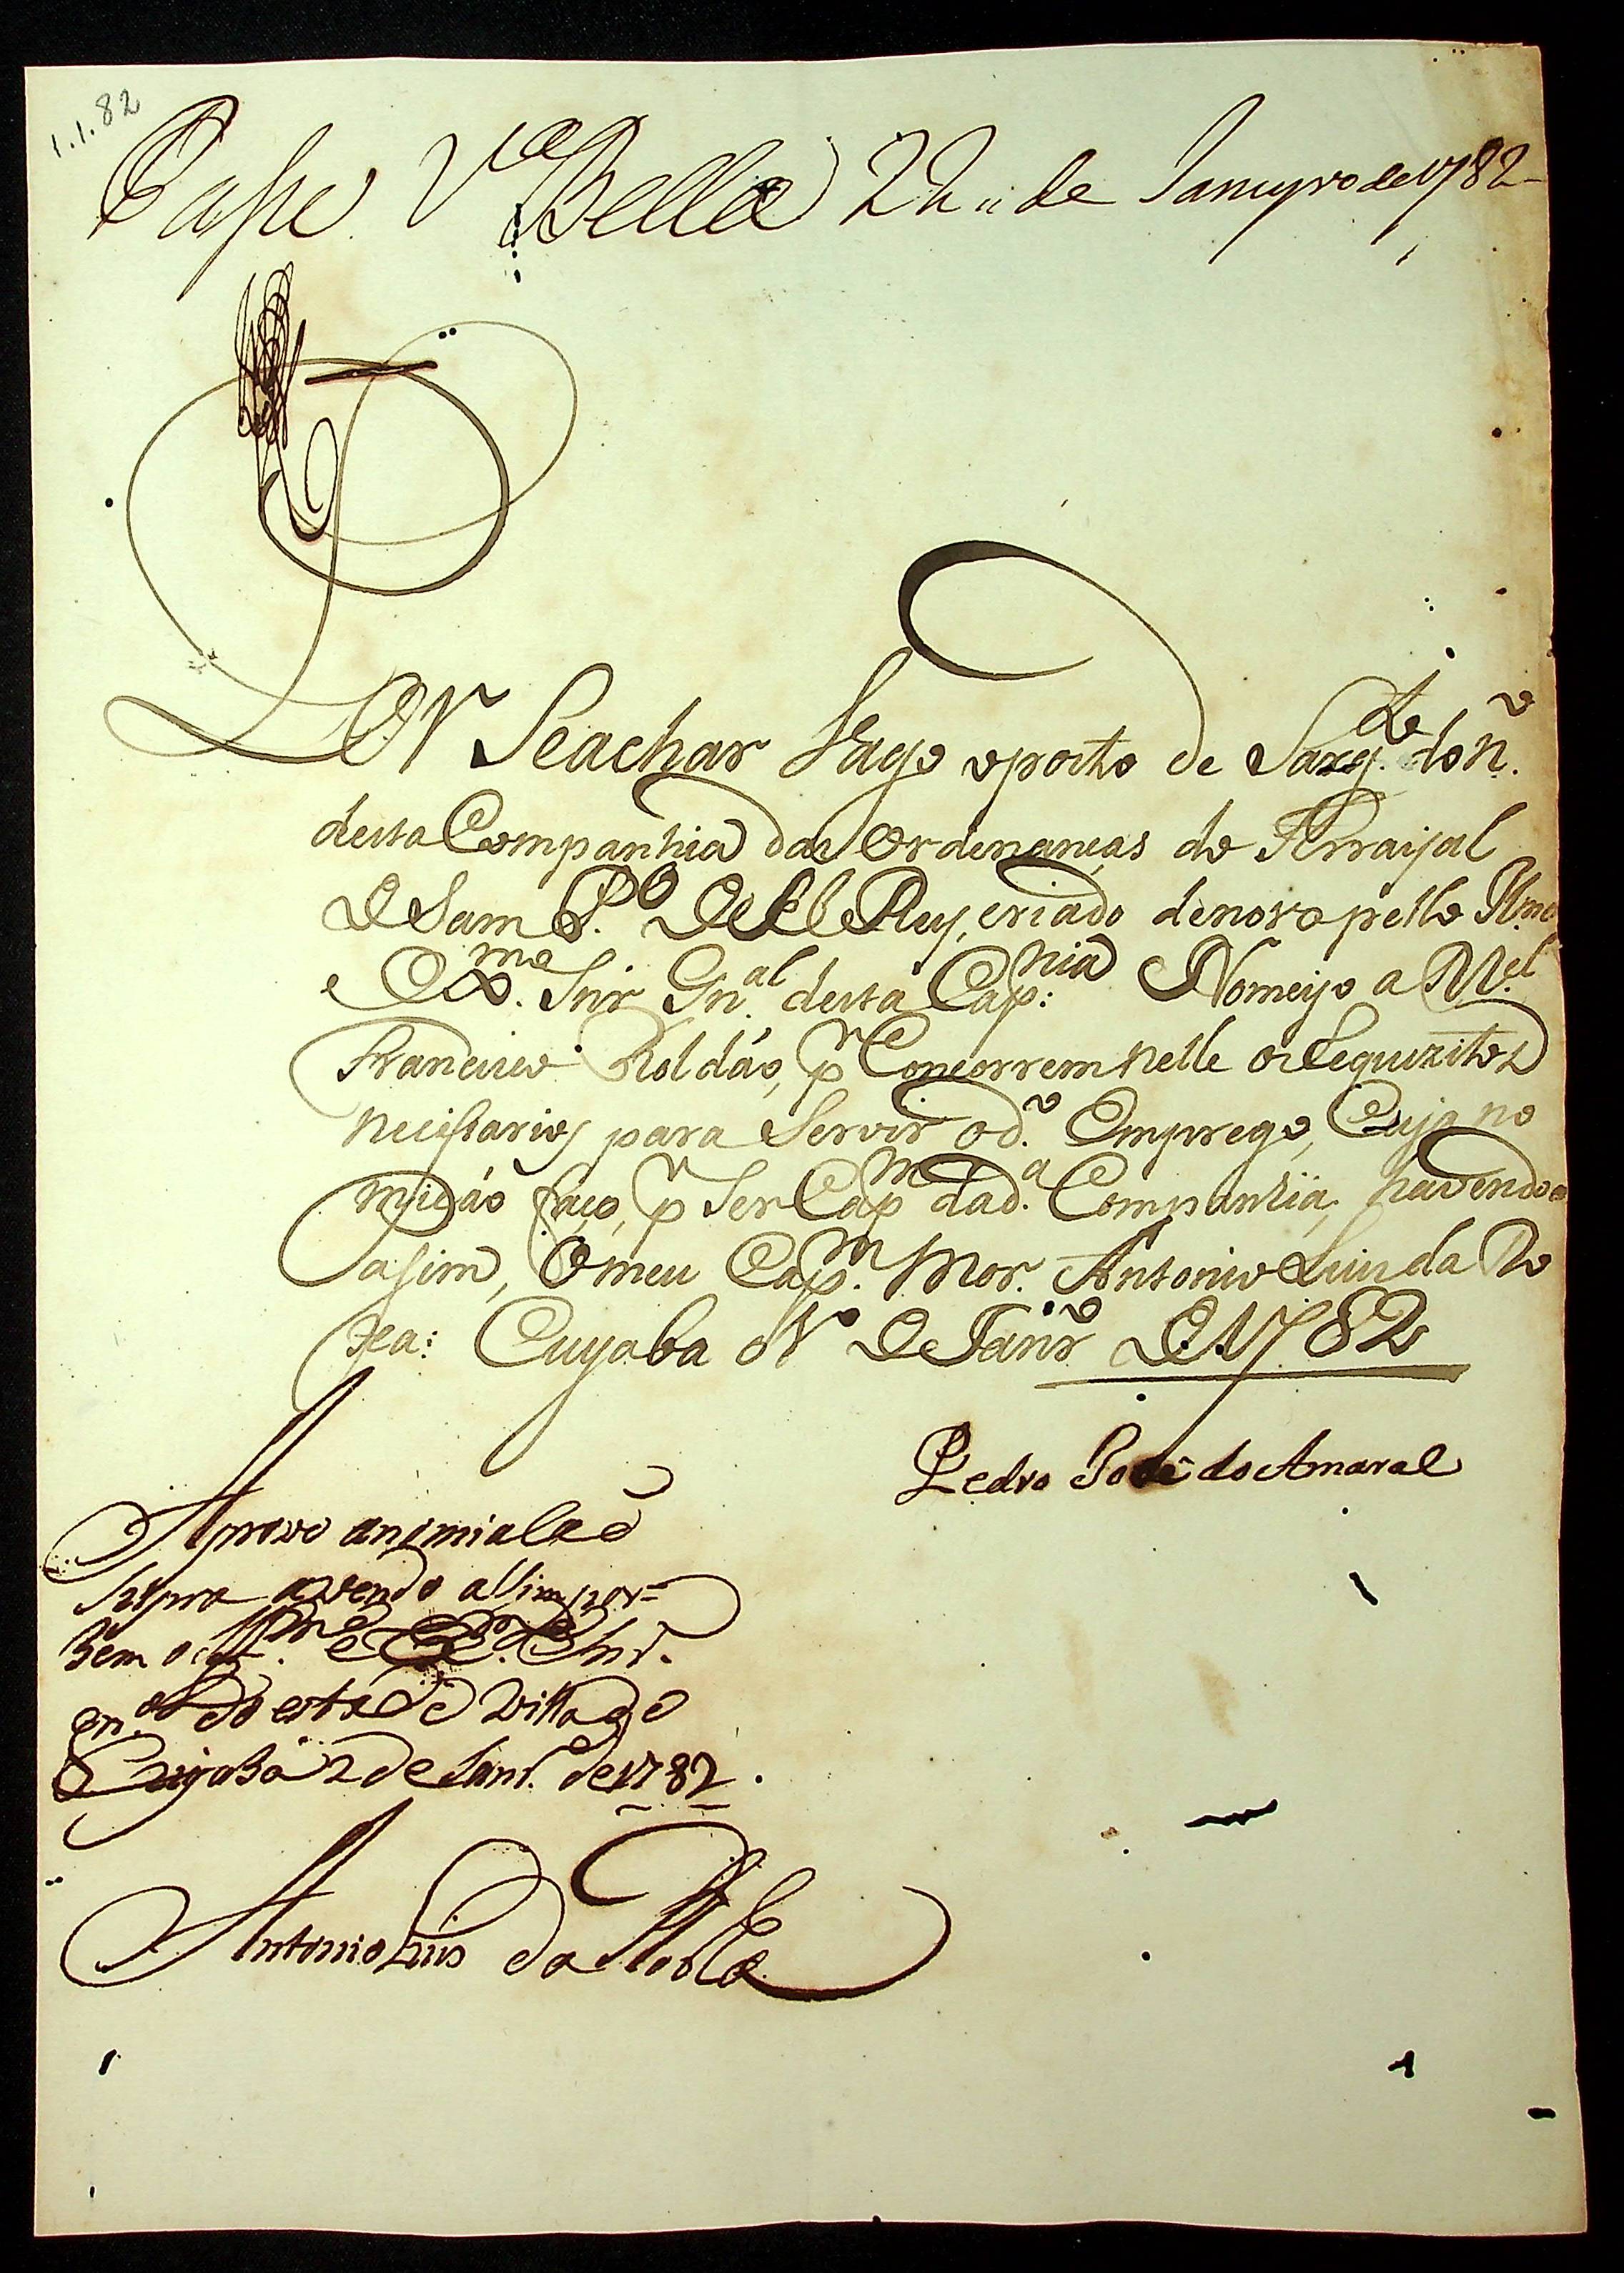 1.1.82
Passe V.ª Bella 22 de Janeyro de 1782
POr Seachar Vago o posto de Sarg.to do n.o
desta Companhia das Ordenanças do Arraiyal
De Sam P.o DeEl Rey, criado denovo pello Ill.mo
e Ex.mo Snr Gn.al desta Cap.nia Nomeyo a M.el
Francisco Roldáo, p.r Concorrem nelle os Requzitos
necessarios para Servir o d.o Emprego, Cuja no
mição faço, p.r Ser Cap.m da d.a Companhia, havendo o
asim, O meu Cap.m Mor. Antonio Luis da Ro
xa: Cuyaba o 1.o De Janr.o De 1782
Pedro José do Amaral
Aprovo anomiasaõ
supra avendo assim por
bem o Ill.mo e Ex.mo Snr.
Gn.al do estado Villa de
Cuyabá 2 de Janr.o de 1782.
Antonio Luis da Rocha